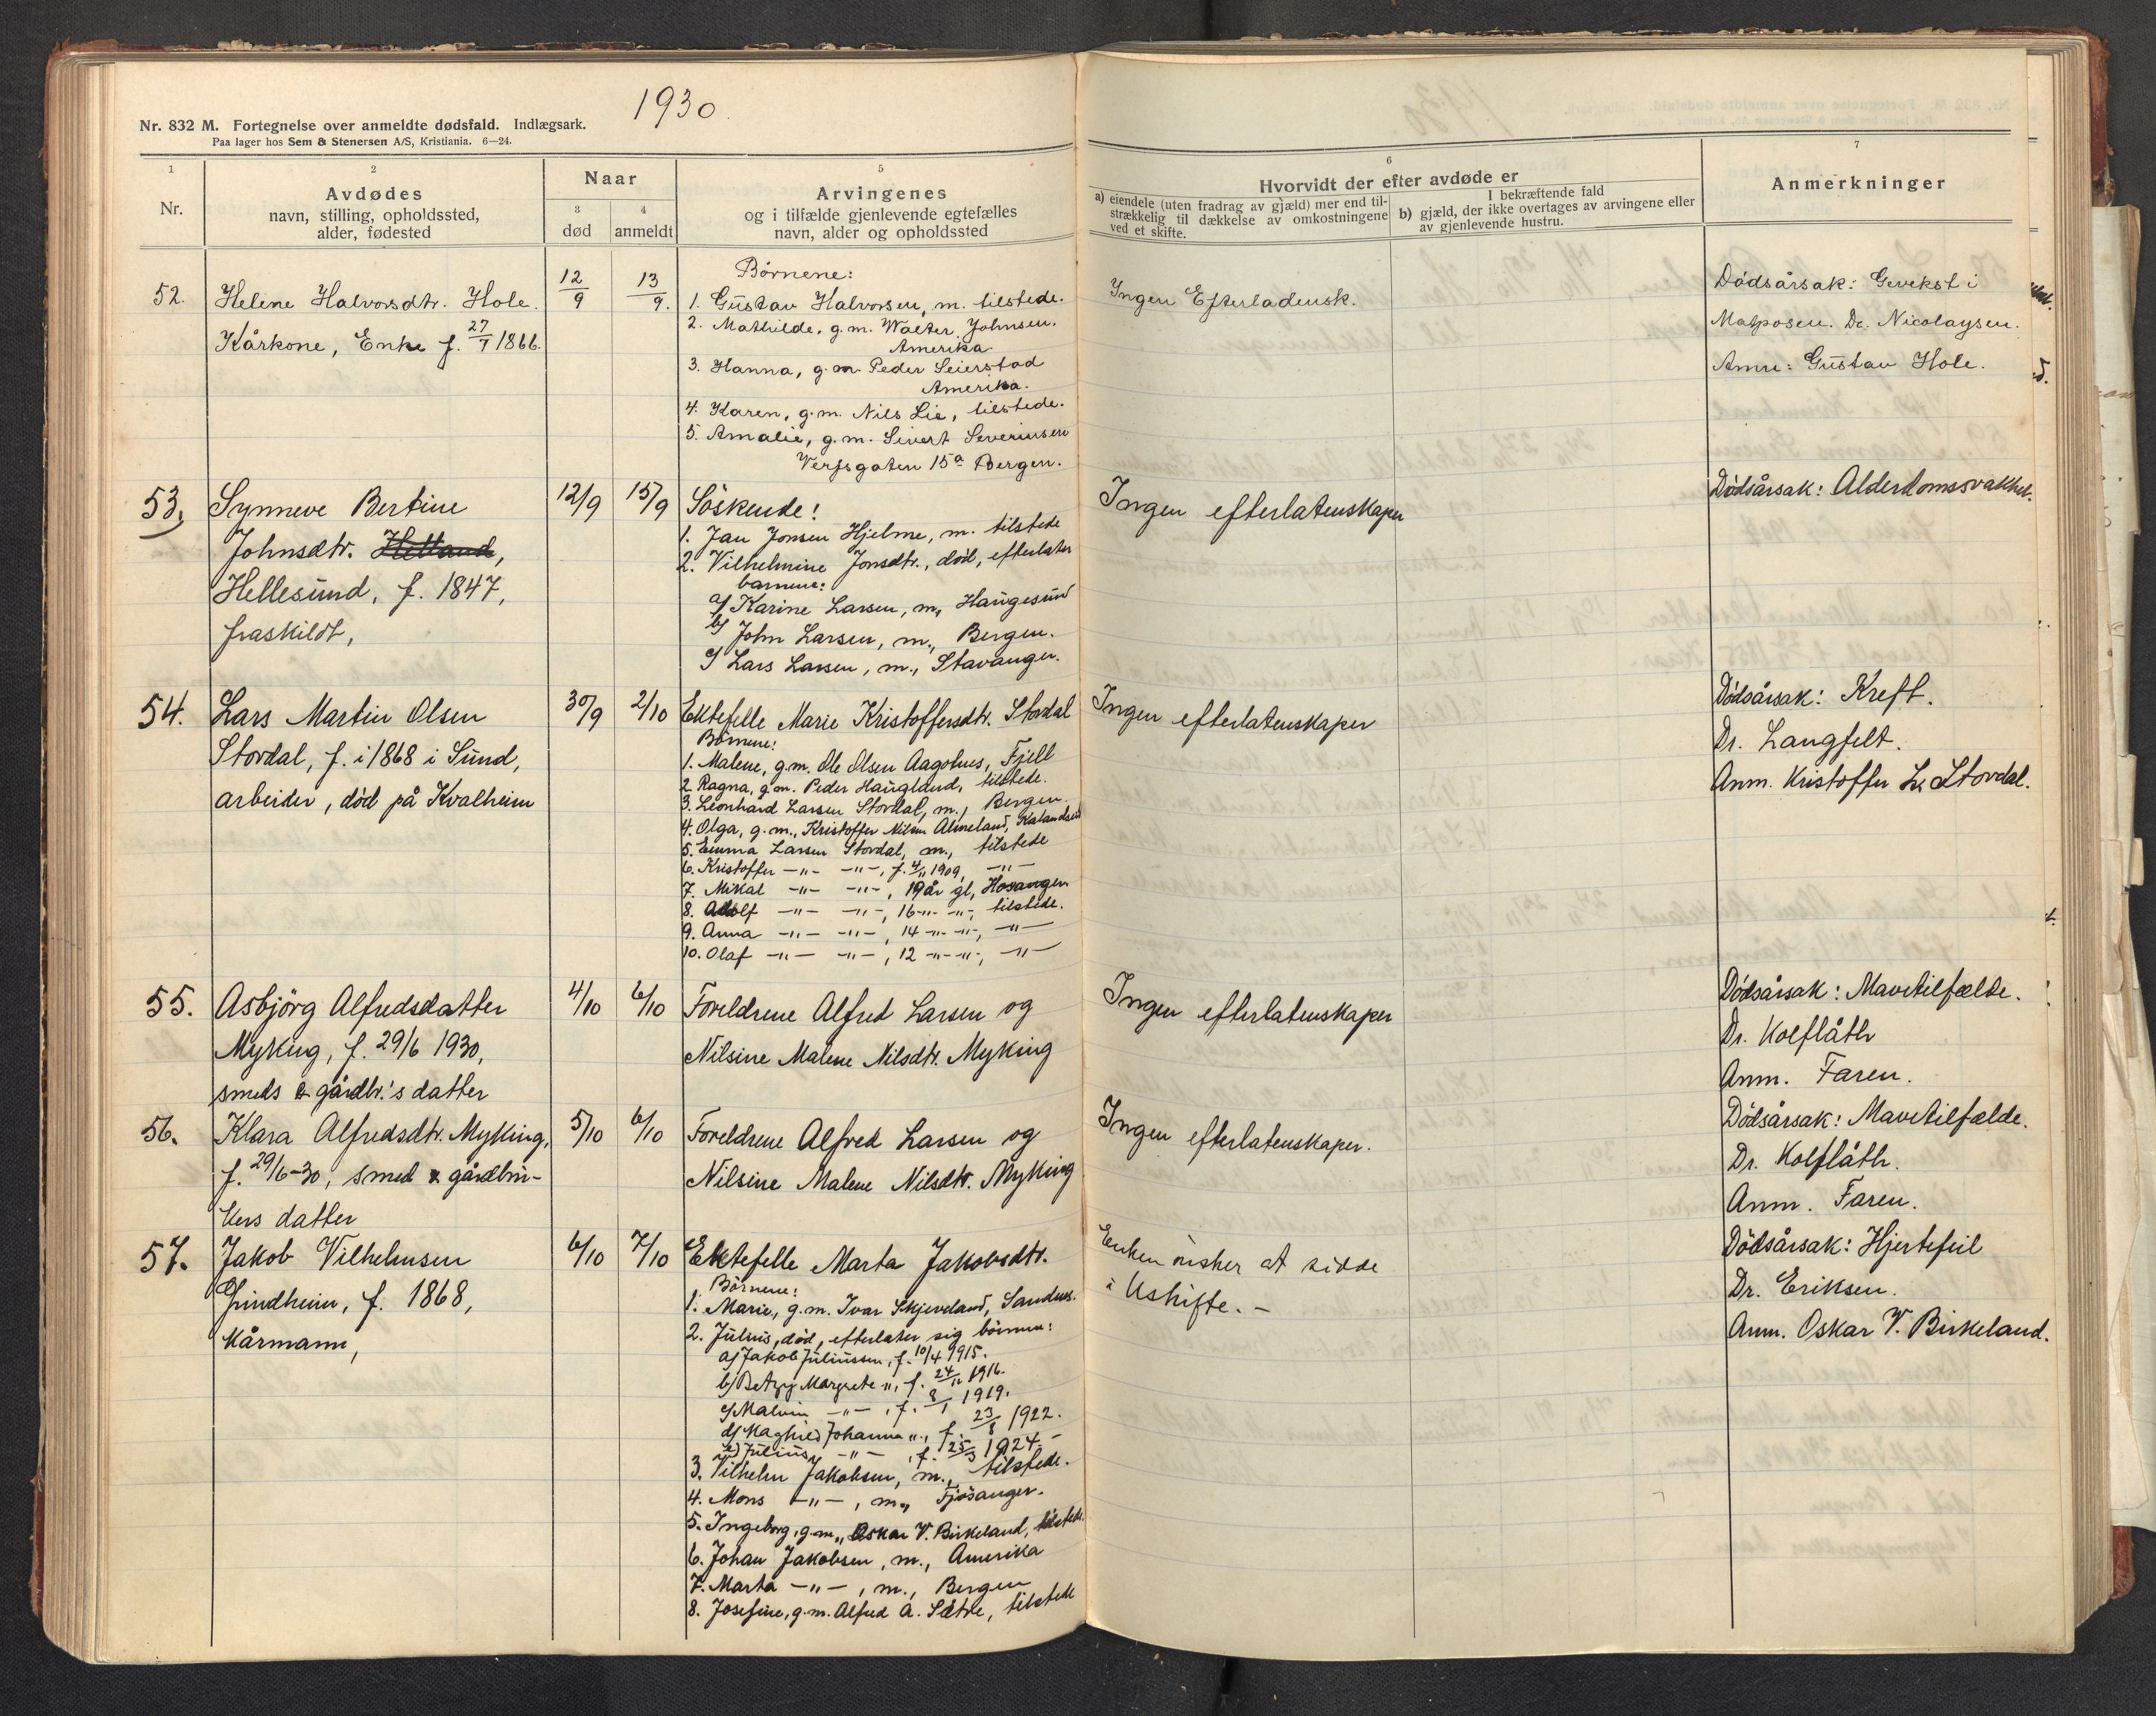 1930.
Nr. 832 M. Fortegnelse over anmeldte dødsfald. Indlægsark.
Paa lager hos Sem & Stenersen A/S, Kristiania. 6—24.
1
Nr.
2
Avdødes
navn, stilling, opholdssted,
alder, fødested
Naar
3
død
4
anmeldt
5
Arvingenes
og i tilfælde gjenlevende egtefælles
navn, alder og opholdssted
6
Hvorvidt der efter avdøde er
a) eiendele (uten fradrag av gjæld) mer end til-
strækkelig til dækkelse av omkostningene
ved et skifte.
I bekræftende fald
b) gjæld, der ikke overtages av arvingene eller
av gjenlevende hustru.
7
Anmerkninger
52. Helene Halvorsdtr. Hole.
Kårkone, Enke f. 27/7 1866.
12/9
13/9.
Børnene:
1. Gustav Halvorsen, m. tilstede.
2. Mathilde, g.m. Walter Johnsen.
Amerika
3. Hanna, g.m. Peder Seierstad
Amerika.
4. Karen, g.m. Nils Lie, tilstede.
5. Amalie, g.m. Sivert Severinsen
Verfsgaten 15a Bergen.
Ingen Efterladensk.
Dødsårsak: Gevekst i
Mavposen. Dr. Nicolaysen.
Anm: Gustav Hole.
53. Synneve Bertine
Johnsdtr. Helland,
Hellesund, f. 1847,
fraskildt,
12/9
15/9
Söskende!
1. Jan Jonsen Hjelme, m. tilstede
2. Vilhelmine Jonsdtr., död, efterlater
barnene:
a/ Karine Larsen, m., Haugesund
b/ John Larsen, m., Bergen.
c/ Lars Larsen, m., Stavanger.
Ingen efterlatenskaper
Dødsårsak: Alderdomssvakhet.
54. Lars Martin Olsen
Stordal, f. i 1868 i Sund,
arbeider, död på Kvalheim
30/9
2/10
Ektefelle Marie Kristoffersdtr. Stordal
Börnene:
1. Malene, g.m. Ole Olsen Aagotnes, Fjell
2. Ragna, g.m. Peder Haugland, tilstede.
3. Leonhard Larsen Stordal, m., Bergen.
4. Olga, g.m., Kristoffer Nilsen Almeland, Kalandseid
5. Emma Larsen Stordal, m., tilstede
6. Kristoffer —"— —"—, f. 4/11 1909, —"—
7. Mikal —"— —"—, 19 år gl, Hosanger
8. Adolf —"— —"—, 16 —"— —"—, tilstede.
9. Anna —"— —"—, 14 —"— —"—, —"—
10. Olaf —"— —"—, 12 —"— —"—, —"—
Ingen efterlatenskaper
Dödsårsak: Kreft.
Dr. Langfelt.
Anm. Kristoffer L. Stordal.
55. Asbjörg Alfredsdatter
Myking, f. 29/6 1930,
smeds & gårdbr.'s datter
4/10
6/10
Foreldrene Alfred Larsen og
Nilsine Malene Nilsdtr. Myking
Ingen efterlatenskaper
Dödsårsak: Mavetilfælde.
Dr. Kolflåth
Anm. Faren.
56. Klara Alfredsdtr. Myking,
f. 29/6-30, smed & gårdbru-
kers datter
5/10
6/10
Foreldrene Alfred Larsen og
Nilsine Malene Nilsdtr. Myking
Ingen efterlatenskaper.
Dödsårsak: Mavetilfælde.
Dr. Kolflåth.
Anm. Faren.
57. Jakob Vilhelmsen
Grindheim, f. 1868,
Kårmann,
6/10
7/10
Ektefelle Marta Jakobsdtr.
Börnene:
1. Marie, g.m. Ivar Skjeveland, Sandnes.
2. Julius, död, efterlater sig börnene:
a/ Jakob Juliussen, f. 10/4 1915.
b/ Betzy Margrete —"—, f. 24/12 1916.
c/ Malvin —"—, f. 8/1 1919.
d/ Maghild Johanna —"—, f. 23/8 1922.
e) Julius —"—, f. 25/3 1924.—
3. Vilhelm Jakobsen, m., tilstede.
4. Mons —"—, m., Fjösanger.
5. Ingeborg, g.m., Oskar V. Birkeland, tilstede.
6. Johan Jakobsen, m., Amerika
7. Marta —"—, m., Bergen
8. Josefine, g.m. Alfred A. Sætre, tilstede
Enken önsker at sidde
i Uskifte. —
Dödsårsak: Hjertefeil
Dr. Eriksen.
Anm. Oskar V. Birkeland.